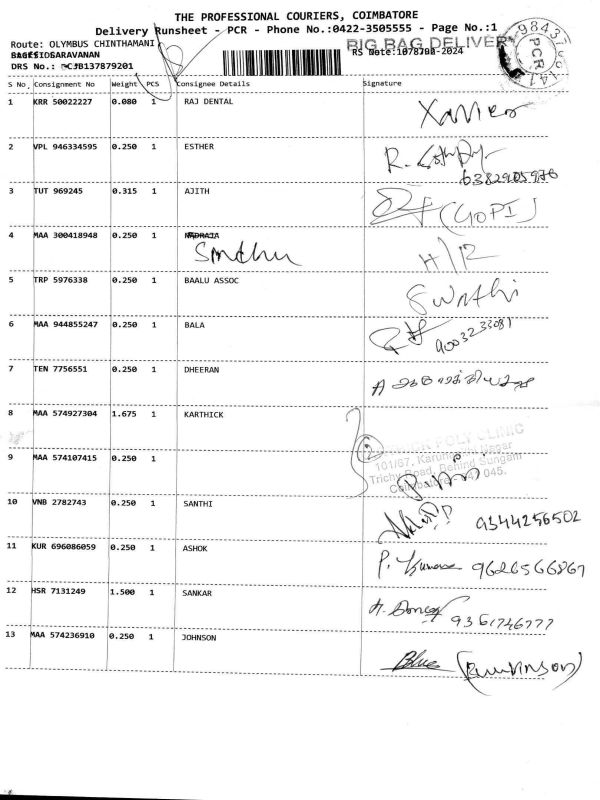 THE PROFESSIONAL COURIERS, COIMBATORE
Delivery Runsheet - PCR - Phone No.:0422-3505555 - Page No.:1
Route: OLYMBUS CHINTHAMANI
BIG BAG DELIVERY
DRS No.: PCJB137879201
S No. Consignment No Weight PCS Consignee Details Signature
1 KRR 50022227 0.080 1 RAJ DENTAL Xavier
2 VPL 946334595 0.250 1 ESTHER
6382905976
3 TUT 969245 0.315 1 AJITH (GOPI)
4 MAA 300418948 0.250 1
Sindhu H/R
5 TRP 5976338 0.250 1 BAALU ASSOC Swathi
6 MAA 944855247 0.250 1 BALA
9003233081
7 TEN 7756551 0.250 1 DHEERAN
8 MAA 574927304 1.675 1 KARTHICK
POLY CLINIC
9 MAA 574107415 0.250 1
101/67, Nagar
Trichy Road, Behind Sungam
Coimbatore 045.
10 VNB 2782743 0.250 1 SANTHI 9344256502
11 KUR 696086059 0.250 1 ASHOK P. Kumar 9626566867
12 HSR 7131249 1.500 1 SANKAR 9361746777
13 MAA 574236910 0.250 1 JOHNSON